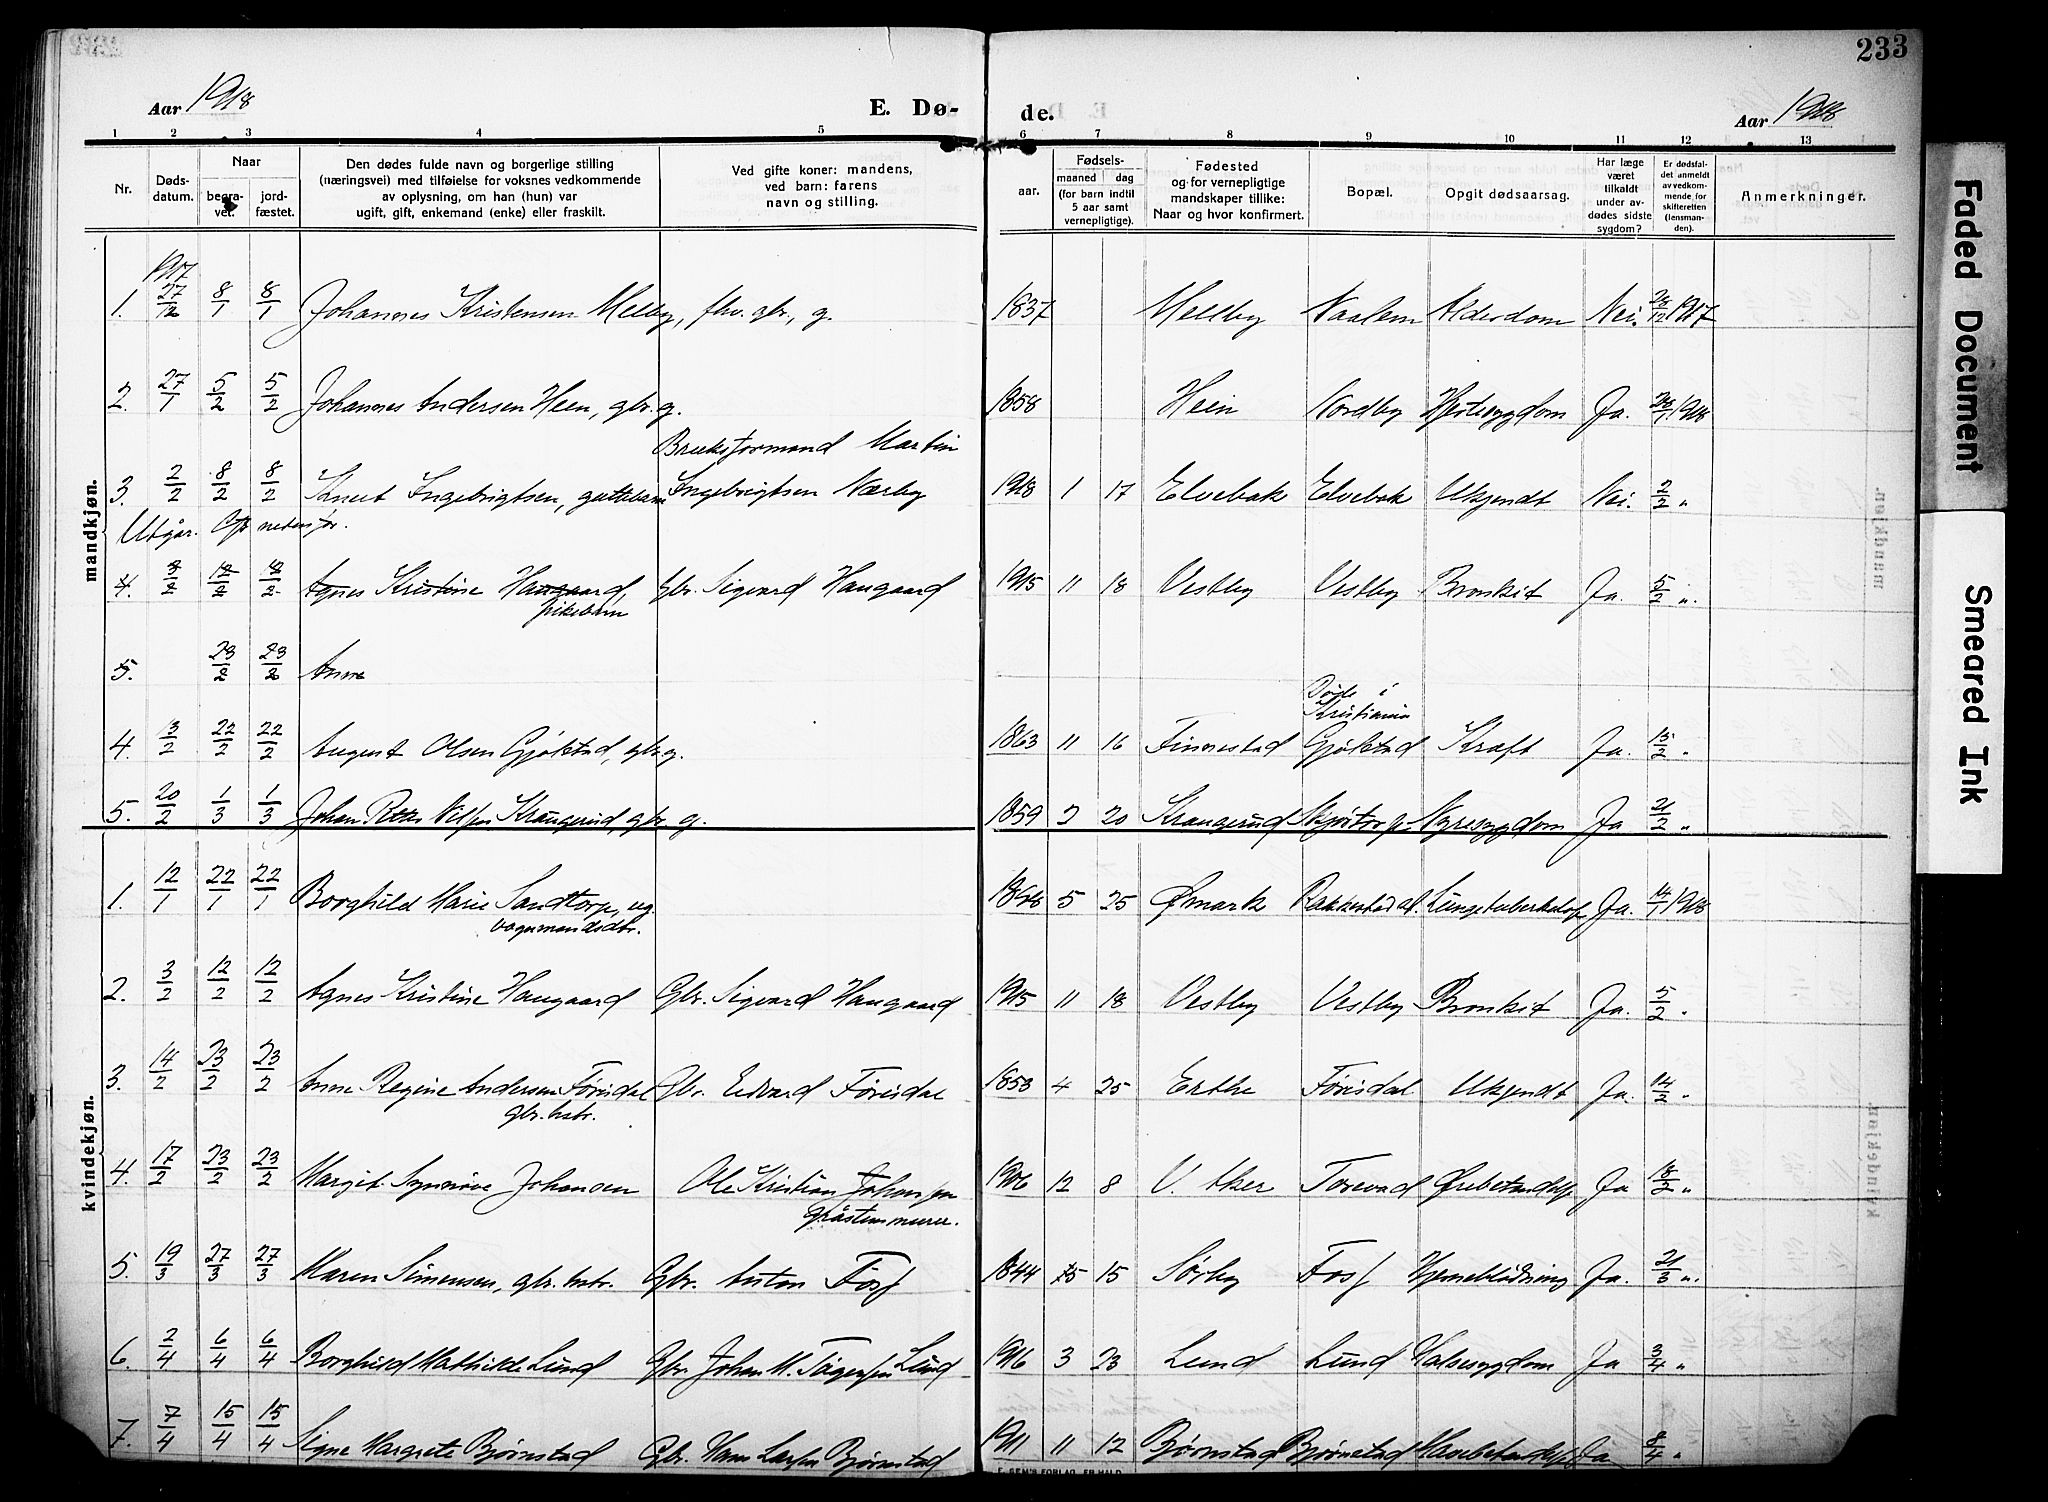 233
Aar 1918
E. Dø- de.
Aar 1918
1 2 3 4 5 6 7 8 9 10 11 12 13
Nr. Døds-datum. Naar begra-vet. jord-fæstet. Den dødes fulde navn og borgerlige stilling (næringsvei) med tilføielse for voksnes vedkommende av oplysning, om han (hun) var ugift, gift, enkemand (enke) eller fraskilt. Ved gifte koner: mandens, ved barn: farens navn og stilling. Fødsels- aar. maaned dag (for barn indtil 5 aar samt vernepligtige). Fødested og for vernepligtige mandskaper tillike: Naar og hvor konfirmert. Bopæl. Opgit dødsaarsag. Har læge været tilkaldt under av-dødes sidste sygdom? Er dødsfal-det anmeldt av vedkom-mende for skifteretten (lensman-den). Anmerkninger.
mandkjøn.
1917
1. 27/12 8/1 8/1 Johannes Kristensen Melby, fhv. gbr., g. 1837 Mellby Naalem Alderdom Nei. 28/12 1917
2. 27/1 5/2 5/2 Johannes Andersen Heen, gbr. g. 1858 Hein Nordby Hjertesygdom Ja. 28/1 1918
Bruksformand Martin
3. 2/2 8/2 8/2 Knut Ingebrigtsen, guttebarn Ingebrigtsen Nærby 1918 1 17 Elvebak Elvebak Ukjendt Nei. 2/2 "
Utgår. Cfr. nedenfor.
4. 3/2 12/2 12/2 Agnes Kristine Haugaard, Gbr. Sigvard Haugaard 1915 11 18 Vestby Vestby Bronkit Ja. 5/2 "
pikebarn
5. 23/2 23/2 Anne
Døde i
Kristiania
4. 13/2 22/2 22/2 August Olsen Gjølstad, gbr. g. 1863 11 16 Finnestad Gjølstad Kræft Ja. 15/2 "
5. 20/2 1/3 1/3 Johan Nilsen Krangerud, gbr. g. 1859 2 20 Krangerud Nyresygdom Ja 21/2 "
kvindekjøn.
1. 12/1 22/1 22/1 Borghild Marie Sandtorp, ug. 1898 5 25 Ømark Rakkestad al. Lungetuberkulose Ja. 14/1 1918
vognmandsdtr.
2. 3/2 12/2 12/2 Agnes Kristine Haugaard Gbr. Sigvard Haugaard 1915 11 18 Vestby Vestby Bronkit Ja. 5/2 "
3. 14/2 23/2 23/2 Anne Regine Andersen Førisdal Gbr. Edvard Førisdal 1853 4 25 Erthe Førisdal Ukjendt Ja. 14/2 "
gbr. hstr.
4. 17/2 23/2 23/2 Margit Synnøve Johansen Ole Kristian Johansen 1906 12 8 V. Aker Torevad Ja 18/2 "
gråstensmurer.
5. 19/3 27/3 27/3 Maren Simensen, gbr. hstr. Gbr. Anton Foss 1844 15 Sørby Foss Hjerneblødning Ja. 21/3 "
6. 2/4 6/4 6/4 Borghild Mathilde Lund Gbr. Johan M. Lund 1916 3 23 Lund Lund Halssygdom Ja 3/4 "
7. 7/4 15/4 15/4 Signe Margrete Bjørnstad Gbr. Hans Larsen Bjørnstad 1911 11 12 Bjørnstad Bjørnstad Ja 8/4 "
Faded Document
Smeared Ink